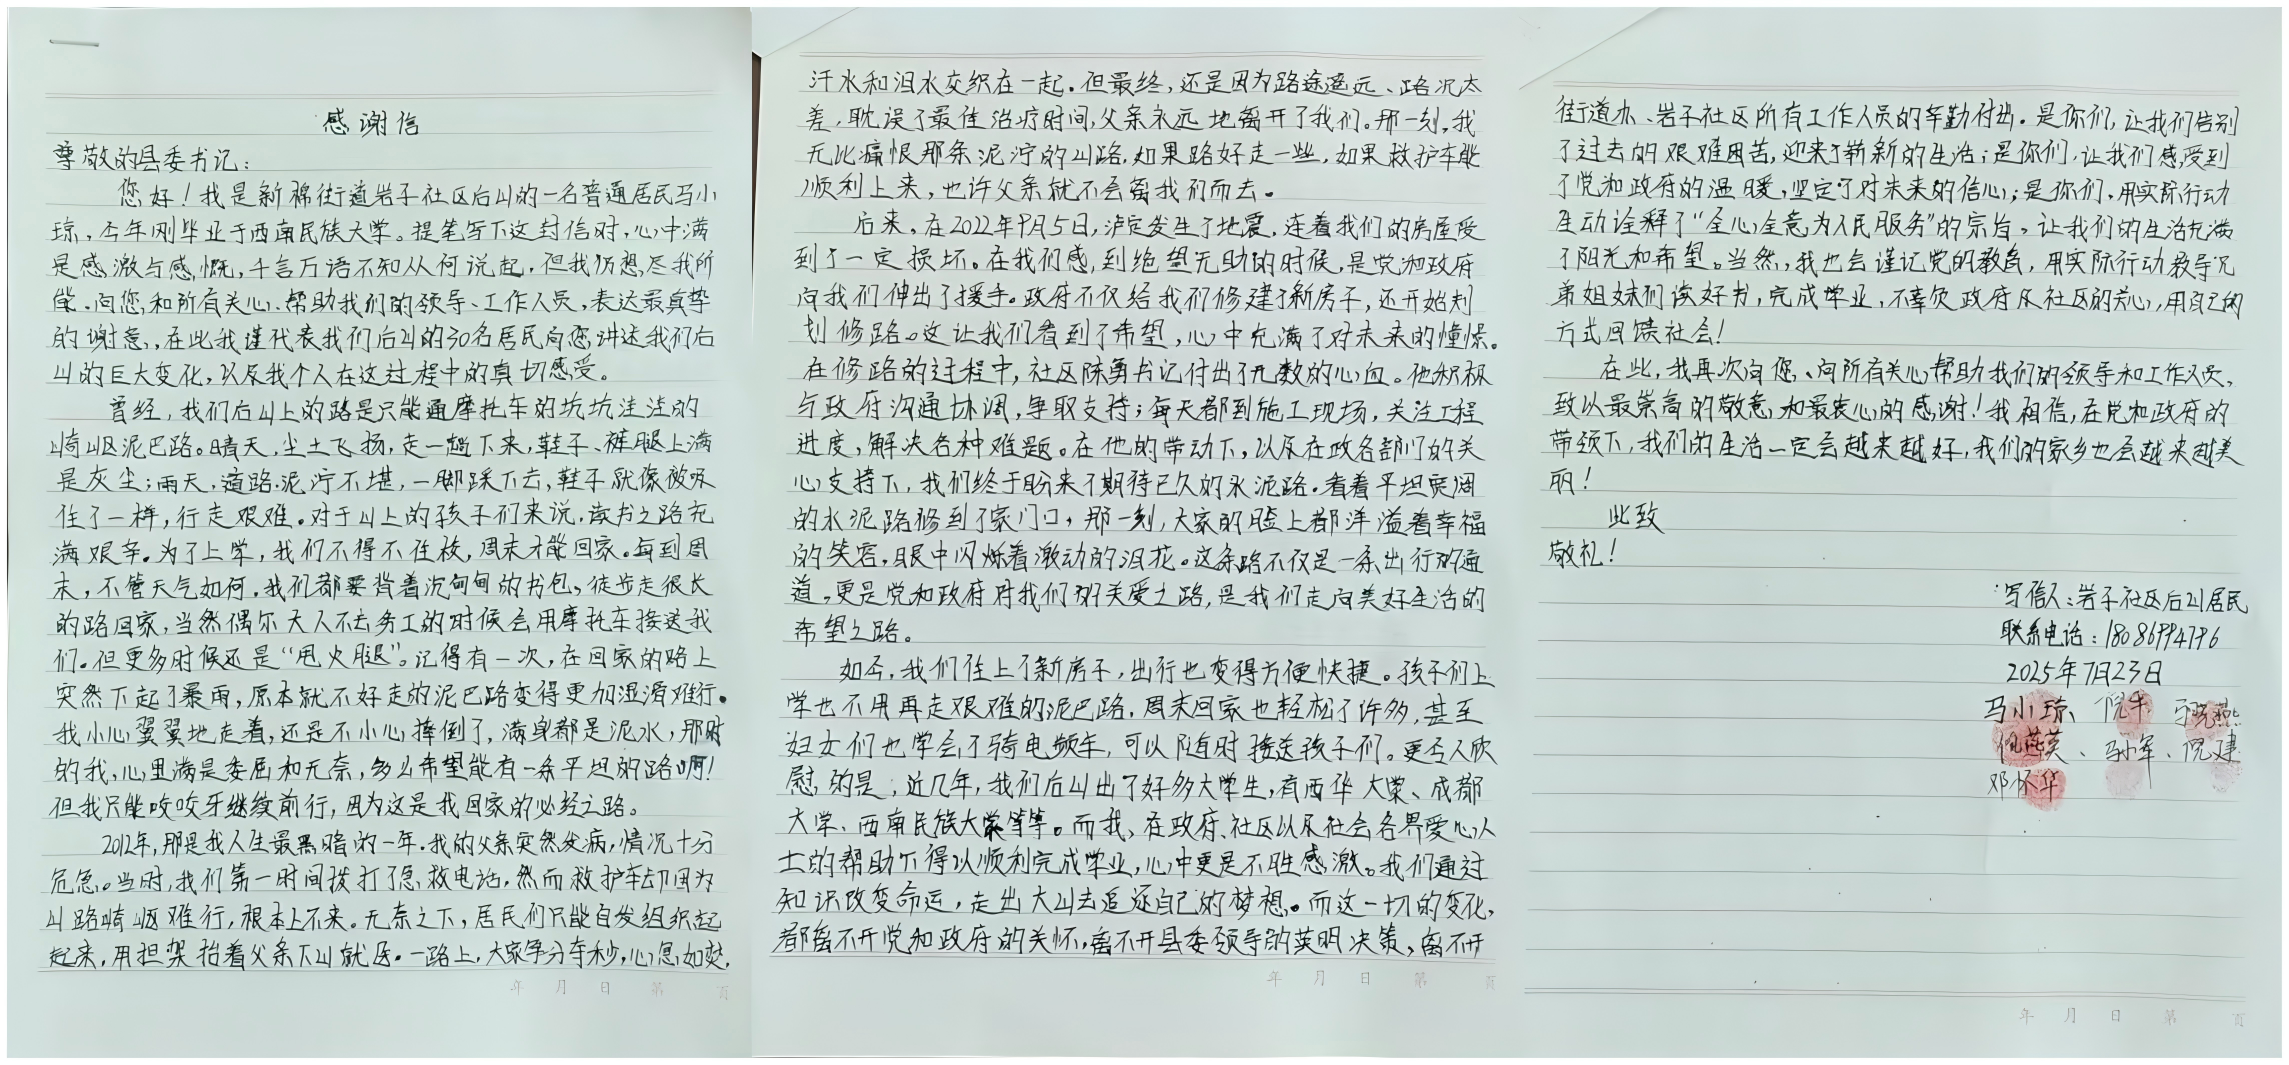 感谢信
尊敬的县委书记:
您好!我是新棉街道岩子社区后山的一名普通居民马小
琼,今年刚毕业于西南民族大学。提笔写下这封信时,心中满
是感激与感慨,千言万语不知从何说起,但我仍想尽我所
能,向您和所有关心、帮助我们的领导、工作人员,表达最真挚
的谢意,在此我谨代表我们后山的30名居民向您讲述我们后
山的巨大变化,以及我个人在这过程中的真切感受。
曾经,我们后山上的路是只能通摩托车的坑坑洼洼的
崎岖泥巴路。晴天,尘土飞扬,走一趟下来,鞋子、裤腿上满
是灰尘;雨天,道路泥泞不堪,一脚踩下去,鞋子就像被吸
住了一样,行走艰难。对于山上的孩子们来说,读书之路充
满艰辛。为了上学,我们不得不住校,周末才能回家。每到周
末,不管天气如何,我们都要背着沉甸甸的书包,徒步走很长
的路回家,当然偶尔大人不去务工的时候会用摩托车接送我
们。但更多时候还是“甩火腿”。记得有一次,在回家的路上
突然下起了暴雨,原本就不好走的泥巴路变得更加湿滑难行。
我小心翼翼地走着,还是不小心摔倒了,满身都是泥水,那时
的我,心里满是委屈和无奈,多么希望能有一条平坦的路啊!
但我只能咬咬牙继续前行,因为这是我回家的必经之路。
2012年,那是我人生最黑暗的一年。我的父亲突然发病,情况十分
危急。当时,我们第一时间拨打了急救电话,然而救护车却因为
山路崎岖难行,根本上不来。无奈之下,居民们只能自发组织起
起来,用担架抬着父亲下山就医。一路上,大家争分夺秒,心急如焚,
年 月 日 第 页
汗水和泪水交织在一起。但最终,还是因为路途遥远、路况太
差,耽误了最佳治疗时间,父亲永远地离开了我们。那一刻,我
无比痛恨那条泥泞的山路,如果路好走一些,如果救护车能
顺利上来,也许父亲就不会离我们而去。
后来,在2022年9月5日,泸定发生了地震,连着我们的房屋受
到了一定损坏。在我们感到绝望无助的时候,是党和政府
向我们伸出了援手。政府不仅给我们修建了新房子,还开始划
划修路。这让我们看到了希望,心中充满了对未来的憧憬。
在修路的过程中,社区陈勇书记付出了无数的心血。他积极
与政府沟通协调,争取支持;每天都到施工现场,关注工程
进度,解决各种难题。在他的带动下,以及在政各部门的关
心支持下,我们终于盼来了期待已久的水泥路。看着平坦宽阔
的水泥路修到了家门口,那一刻,大家的脸上都洋溢着幸福
的笑容,眼中闪烁着激动的泪花。这条路不仅是一条出行的通
道,更是党和政府对我们的关爱之路,是我们走向美好生活的
希望之路。
如今,我们住上了新房子,出行也变得方便快捷。孩子们上
学也不用再走艰难的泥巴路,周末回家也轻松了许多,甚至
妇女们也学会了骑电频车,可以随时接送孩子们。更令人欣
慰的是,近几年,我们后山出了好多大学生,有西华大学、成都
大学、西南民族大学等等。而我,在政府、社区以及社会各界爱心人
士的帮助下得以顺利完成学业,心中更是不胜感激。我们通过
知识改变命运,走出大山去追逐自己的梦想。而这一切的变化,
都离不开党和政府的关怀,离不开县委领导的英明决策,离不开
年 月 日 第 页
街道办、岩子社区所有工作人员的辛勤付出。是你们,让我们告别
了过去的艰难困苦,迎来了崭新的生活;是你们,让我们感受到
了党和政府的温暖,坚定了对未来的信心;是你们,用实际行动
生动诠释了“全心全意为人民服务”的宗旨,让我们的生活充满
了阳光和希望。当然,我也会谨记党的教育,用实际行动教导兄
弟姐妹们读好书,完成学业,不辜负政府及社区的关心,用自己的
方式回馈社会!
在此,我再次向您、向所有关心帮助我们的领导和工作人员,
致以最崇高的敬意和最衷心的感谢!我相信,在党和政府的
带领下,我们的生活一定会越来越好,我们的家乡也会越来越美
丽!
此致
敬礼!
写信人:岩子社区后山居民
联系电话:18086994796
2025年7月23日
马小琼、倪华
倪燕英、马小军、倪建
邓怀华
年 月 日 第 页